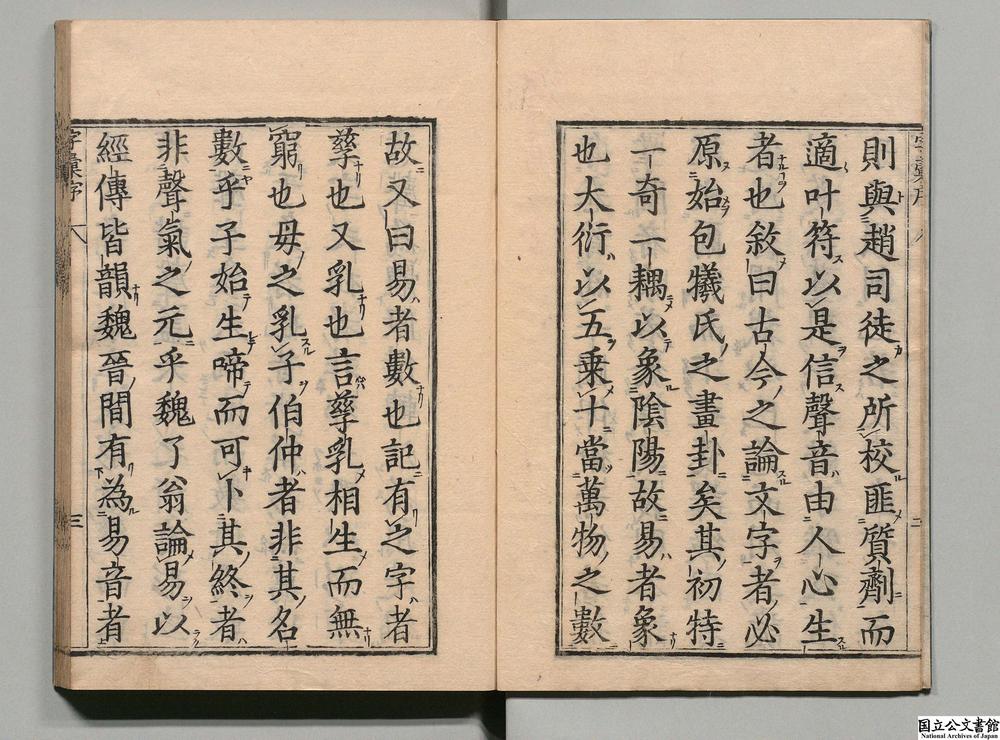 則與趙司徒之所校匪質劑而
適叶符以是信聲音由人心生
者也敘曰古今之論文字者必
原始包犧氏之畫卦矣其初特
一奇一耦以象陰陽故易者象
也大衍以五乘十當萬物之數
故又曰易者數也記有之字者
孳也又乳也言孳乳相生而無
窮也毋之乳子伯仲者非其名
數乎子始生啼而可卜其終者
非聲氣之元乎魏了翁論易以
經傳皆韻魏晉間有為易音者
字彙序
三
国立公文書館
National Archives of Japan